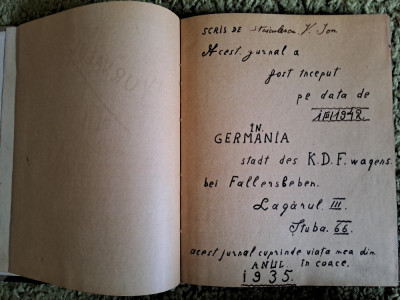 SCRIS DE Stăiculescu V. Ion
Acest jurnal a
fost început
pe data de
1 III 1942.
ÎN
GERMANIA
stadt des K.D.F. wagens.
bei Fallersleben.
Lagărul III.
Stuba. 66.
acest jurnal cuprinde viața mea din
ANUL în coace.
1935.